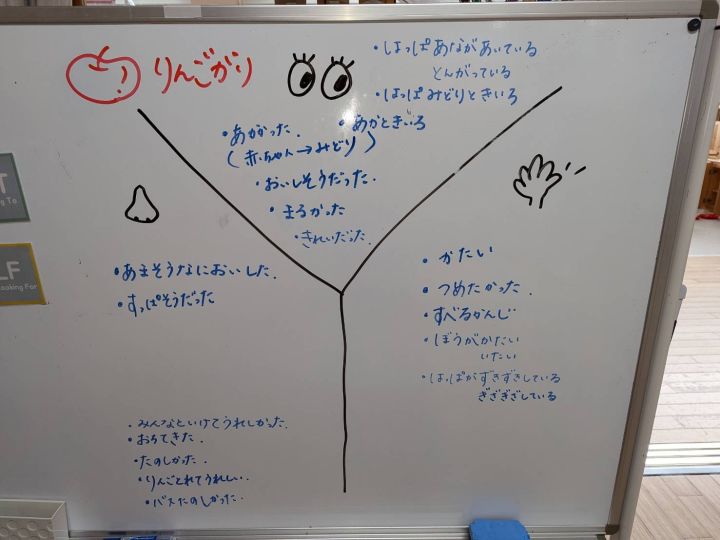 りんごがり
・はっぱあながあいている
とんがっている
・はっぱみどりときいろ
・あかかった.
・あかときいろ
(赤ちゃん→みどり)
・おいしそうだった.
・まるかった
・きれいだった.
・あまそうなにおいした.
・すっぱそうだった
・かたい
・つめたかった.
・すべるかんじ
・ぼうがかたい
いたい
・はっぱがずきずきしている
ぎざぎざしている
・みんなといけてうれしかった.
・おちてきた.
・たのしかった.
・りんごとれてうれしい.
・バスたのしかった.
T
g To
LF
ooking For